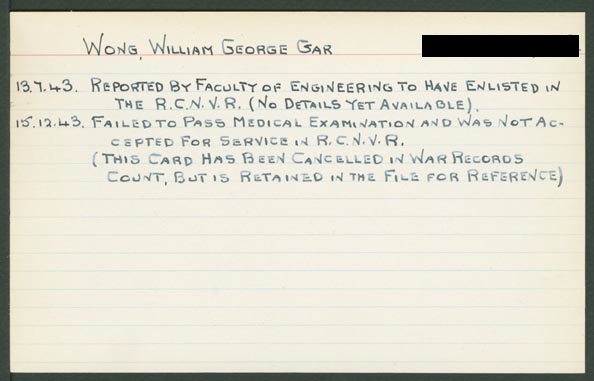 WONG, WILLIAM GEORGE GAR
13.7.43. REPORTED BY FACULTY OF ENGINEERING TO HAVE ENLISTED IN
THE R.C.N.V.R. (NO DETAILS YET AVAILABLE).
15.12.43. FAILED TO PASS MEDICAL EXAMINATION AND WAS NOT AC-
CEPTED FOR SERVICE IN R.C.N.V.R.
(THIS CARD HAS BEEN CANCELLED IN WAR RECORDS
COUNT, BUT IS RETAINED IN THE FILE FOR REFERENCE)